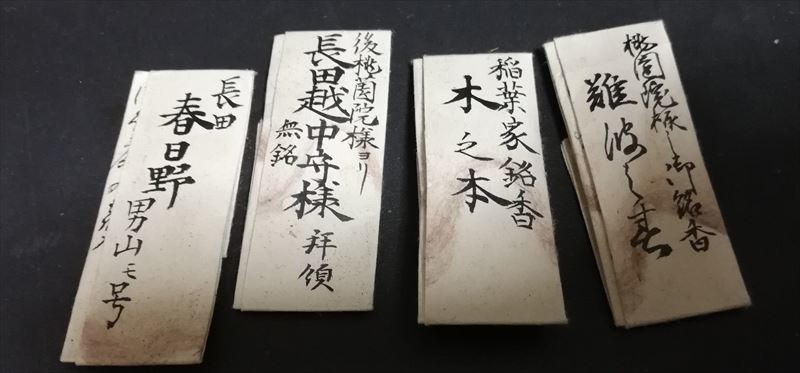 桃園院様之御銘香
難波之春
稲葉家銘香
木之本
後桃園院様ヨリ
長田越中守様 拝領
無銘
長田
春日野
男山モ号